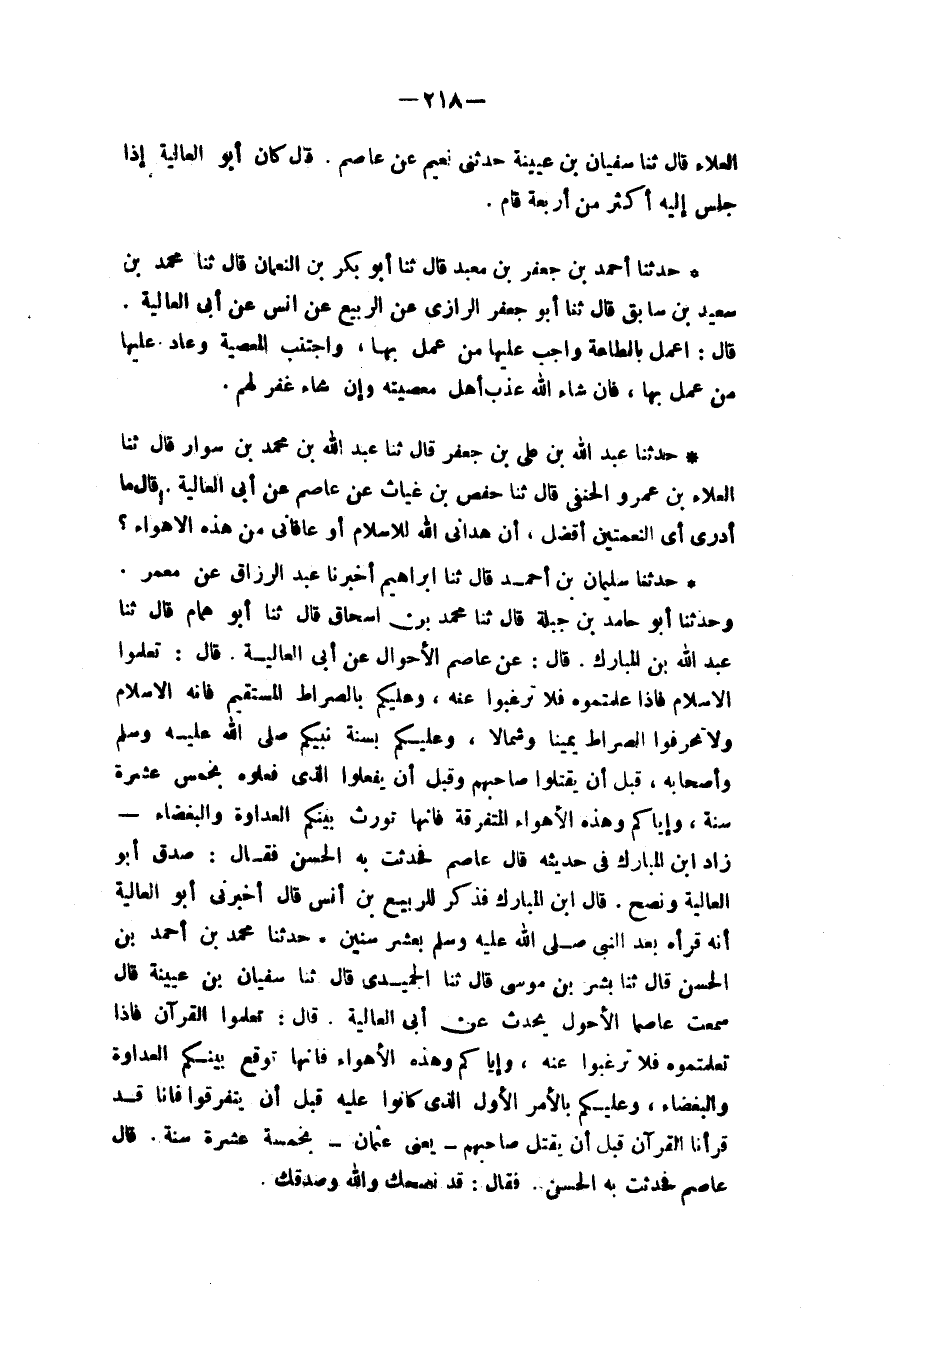 —٢١٨—
العلاء قال ثنا سفيان بن عيينة حدثنى نعيم عن عاصم . قال كان أبو العالية إذا
جلس إليه أكثر من أربعة قام .
* حدثنا أحمد بن جعفر بن معبد قال ثنا أبو بكر بن النعمان قال ثنا محمد بن
سعيد بن سابق قال ثنا أبو جعفر الرازى عن الربيع عن انس عن أبى العالية .
قال : اعمل بالطاعة واجب عليها من عمل بها ، واجتنب المعصية وعاد عليها
من عمل بها ، فان شاء الله عذب أهل معصيته وإن شاء غفر لهم .
* حدثنا عبد الله بن على بن جعفر قال ثنا عبد الله بن محمد بن سوار قال ثنا
العلاء بن عمرو الحنفى قال ثنا حفص بن غياث عن عاصم عن أبى العالية . قال ما
أدرى أى النعمتين أفضل ، أن هدانى الله للاسلام أو عافانى من هذه الاهواء ؟
* حدثنا سليمان بن أحمد قال ثنا ابراهيم أخبرنا عبد الرزاق عن معمر .
وحدثنا أبو حامد بن جبلة قال ثنا محمد بن اسحاق قال ثنا أبو همام قال ثنا
عبد الله بن المبارك . قال : عن عاصم الأحوال عن أبى العالية . قال : تعلموا
الاسلام فاذا علمتموه فلا ترغبوا عنه ، وعليكم بالصراط المستقيم فانه الاسلام
ولا تحرفوا الصراط يمينا وشمالا ، وعليكم بسنة نبيكم صلى الله عليه وسلم
وأصحابه ، قبل أن يقتلوا صاحبهم وقبل أن يفعلوا الذى فعلوه بخمس عشرة
سنة ، وإياكم وهذه الأهواء المتفرقة فانها تورث بينكم العداوة والبغضاء —
زاد ابن المبارك فى حديثه قال عاصم فحدثت به الحسن فقال : صدق أبو
العالية ونصح . قال ابن المبارك فذكر للربيع بن أنس قال أخبرنى أبو العالية
أنه قرأه بعد النبى صلى الله عليه وسلم بعشر سنين * حدثنا محمد بن أحمد بن
الحسن قال ثنا بشر بن موسى قال ثنا الحميدى قال ثنا سفيان بن عيينة قال
سمعت عاصما الأحول يحدث عن أبى العالية . قال : تعلموا القرآن فاذا
تعلمتموه فلا ترغبوا عنه ، وإياكم وهذه الأهواء فانها توقع بينكم العداوة
والبغضاء ، وعليكم بالأمر الأول الذى كانوا عليه قبل أن يتفرقوا فانا قد
قرأنا القرآن قبل أن يقتل صاحبهم – يعنى عثمان – بخمسة عشرة سنة . قال
عاصم فحدثت به الحسن . فقال : قد نصحك والله وصدقك .